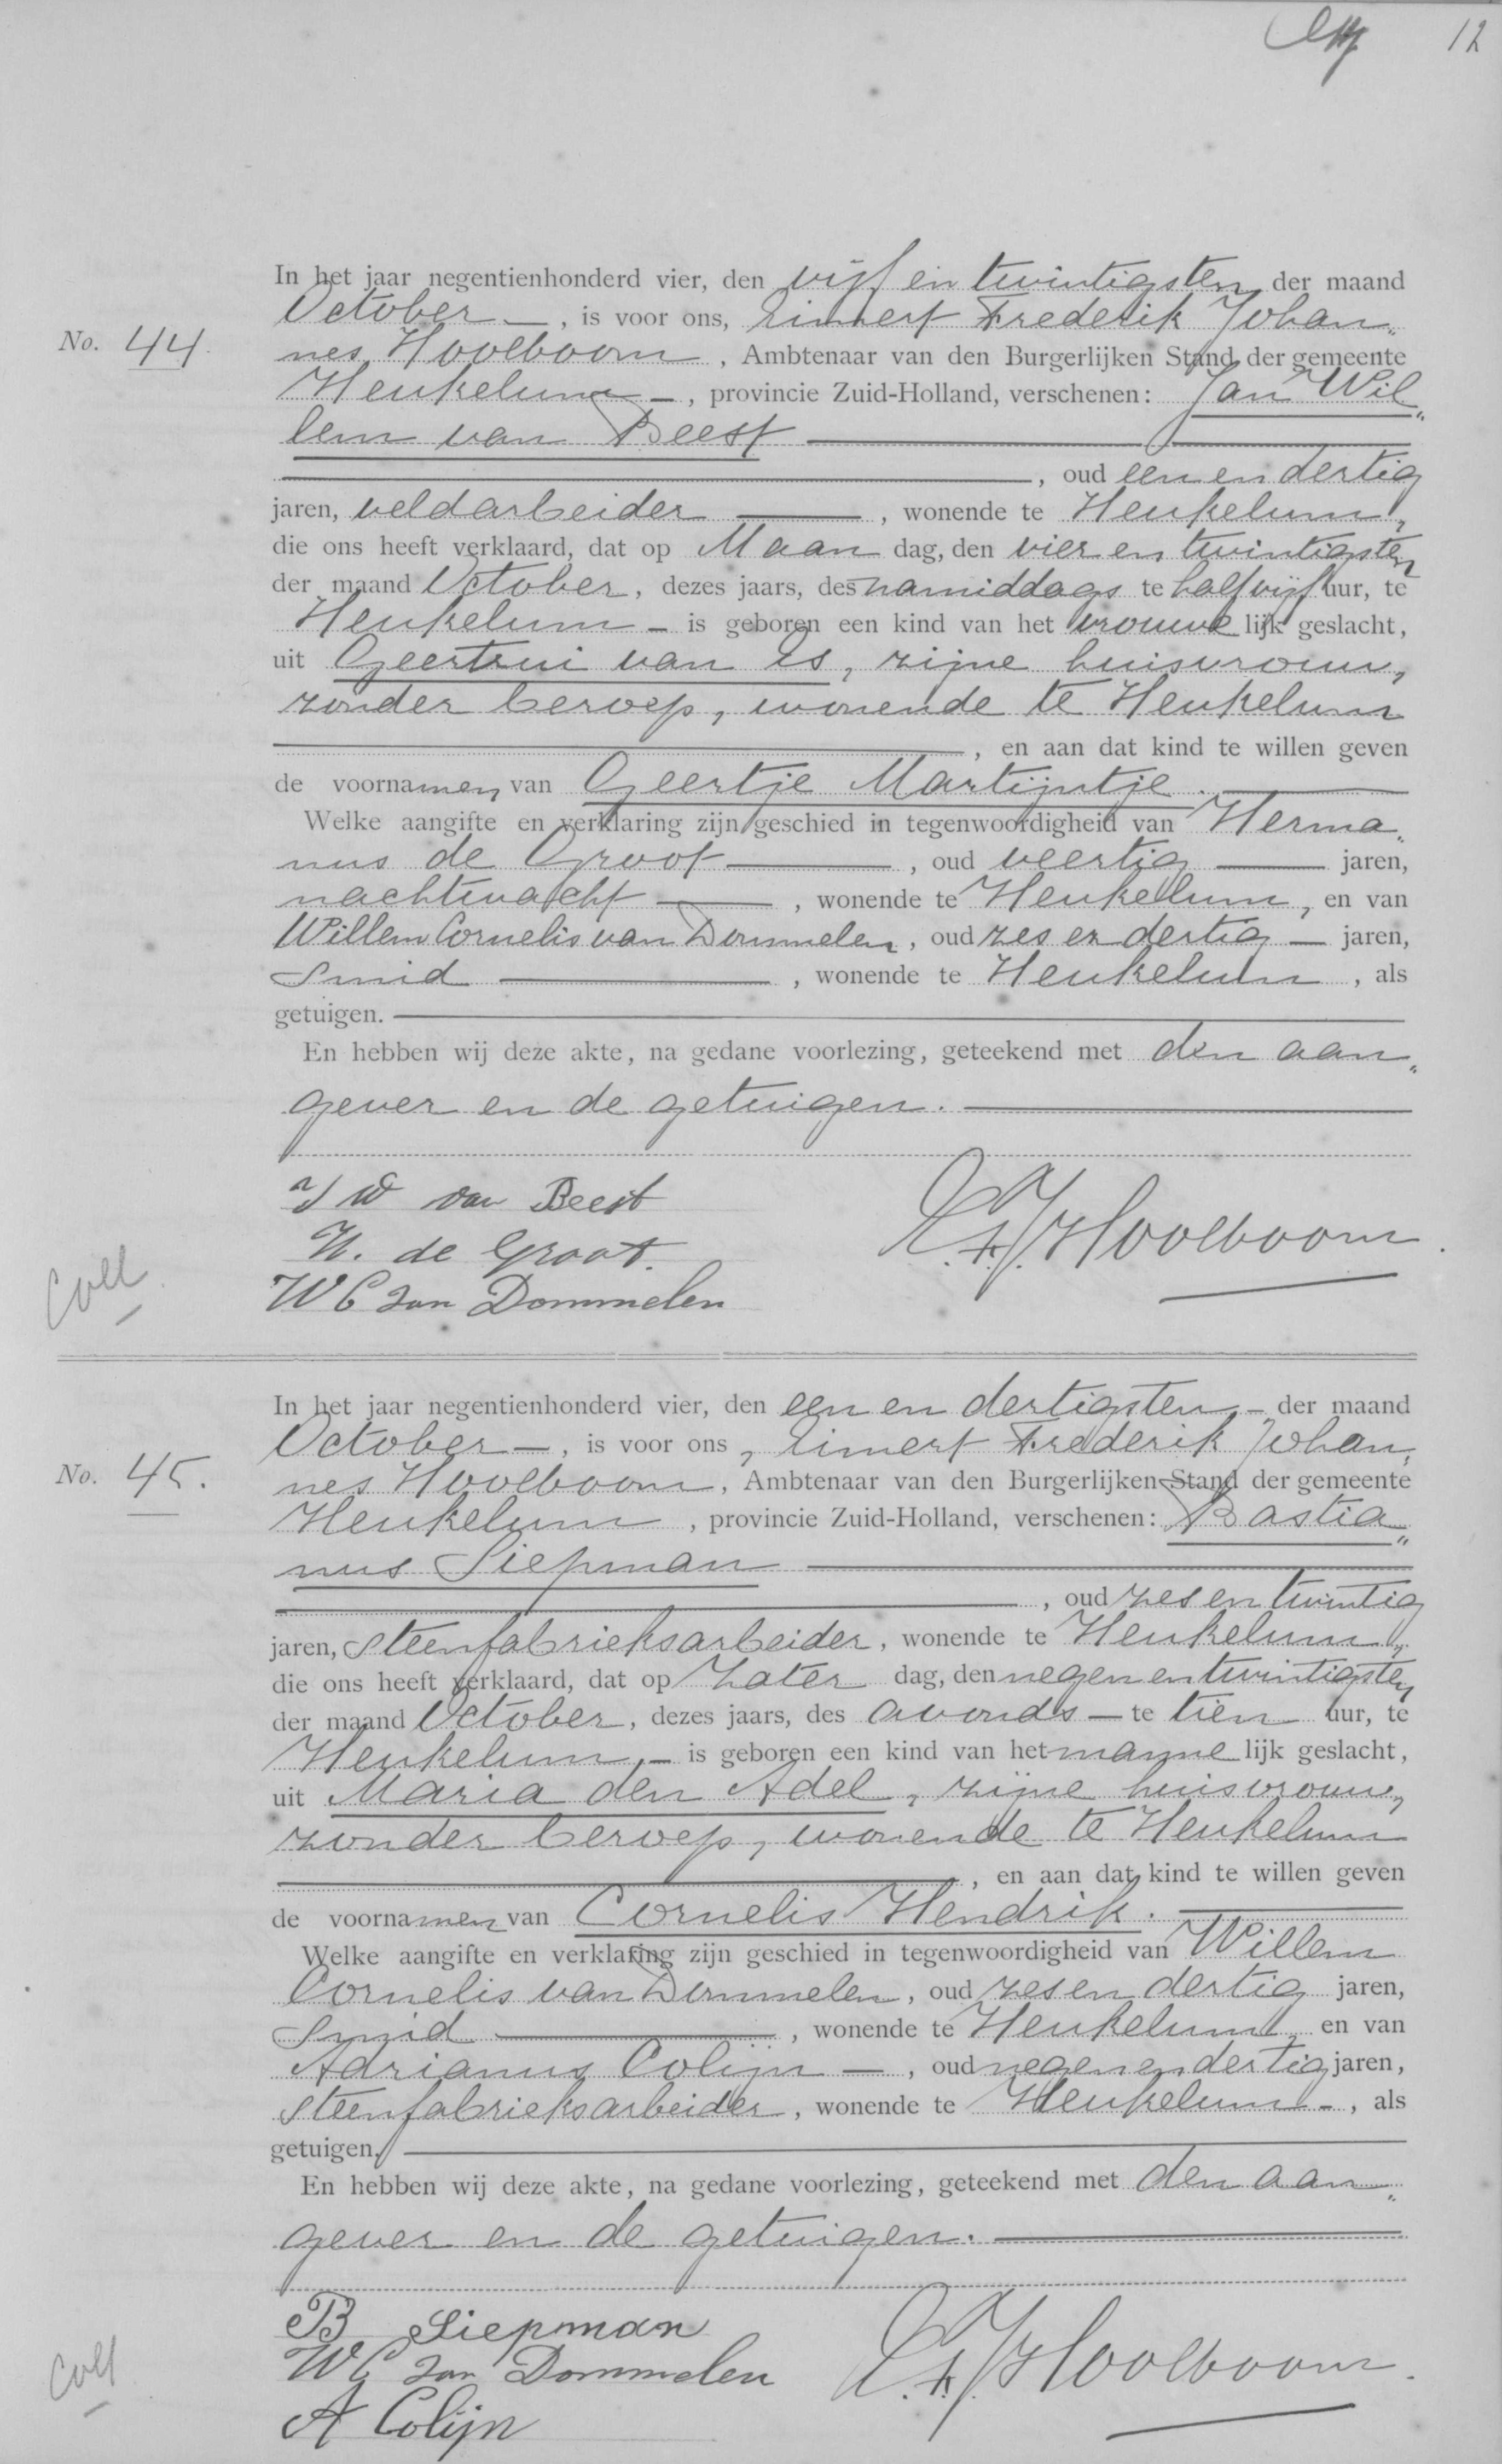 12
In het jaar negentienhonderd vier, den vijf en twintigsten der maand
October —, is voor ons, Eimert Frederik Johan„
No. 44. nes Hoolboom, Ambtenaar van den Burgerlijken Stand der gemeente
Heukelum —, provincie Zuid-Holland, verschenen: Jan Wil„
lem van Beest
, oud een en dertig
jaren, veldarbeider, wonende te Heukelum,
die ons heeft verklaard, dat op Maandag, den vier en twintigsten
der maand October, dezes jaars, des namiddags te half vijf uur, te
Heukelum — is geboren een kind van het vrouwelijk geslacht,
uit Geertrui van Es, zijne huisvrouw,
zonder beroep, wonende te Heukelum
, en aan dat kind te willen geven
de voornamen van Geertje Martijntje.
Welke aangifte en verklaring zijn geschied in tegenwoordigheid van Herma„
nus de Groot, oud veertig jaren,
nachtwacht, wonende te Heukelum, en van
Willem Cornelis van Dommelen, oud zes en dertig — jaren,
smid, wonende te Heukelum, als
getuigen.
En hebben wij deze akte, na gedane voorlezing, geteekend met den aan„
gever en de getuigen.
J W van Beest
H. de Groot.
E.F.J. Hoolboom.
Coll
W C van Dommelen
In het jaar negentienhonderd vier, den een en dertigsten — der maand
October —, is voor ons, Eimert Frederik Johan„
No. 45. nes Hoolboom, Ambtenaar van den Burgerlijken Stand der gemeente
Heukelum, provincie Zuid-Holland, verschenen: Bastia„
nus Siepman
, oud zes en twintig
jaren, steenfabrieksarbeider, wonende te Heukelum,
die ons heeft verklaard, dat op Zaterdag, den negen en twintigsten
der maand October, dezes jaars, des avonds — te tien uur, te
Heukelum — is geboren een kind van het mannelijk geslacht,
uit Maria den Adel, zijne huisvrouw,
zonder beroep, wonende te Heukelum
, en aan dat kind te willen geven
de voornamen van Cornelis Hendrik.
Welke aangifte en verklaring zijn geschied in tegenwoordigheid van Willem
Cornelis van Dommelen, oud zes en dertig jaren,
smid, wonende te Heukelum, en van
Adrianus Colijn —, oud negen en dertig jaren,
steenfabrieksarbeider, wonende te Heukelum —, als
getuigen.
En hebben wij deze akte, na gedane voorlezing, geteekend met den aan„
gever en de getuigen.
B Siepman
W C van Dommelen
E.F.J. Hoolboom.
Coll
A Colijn